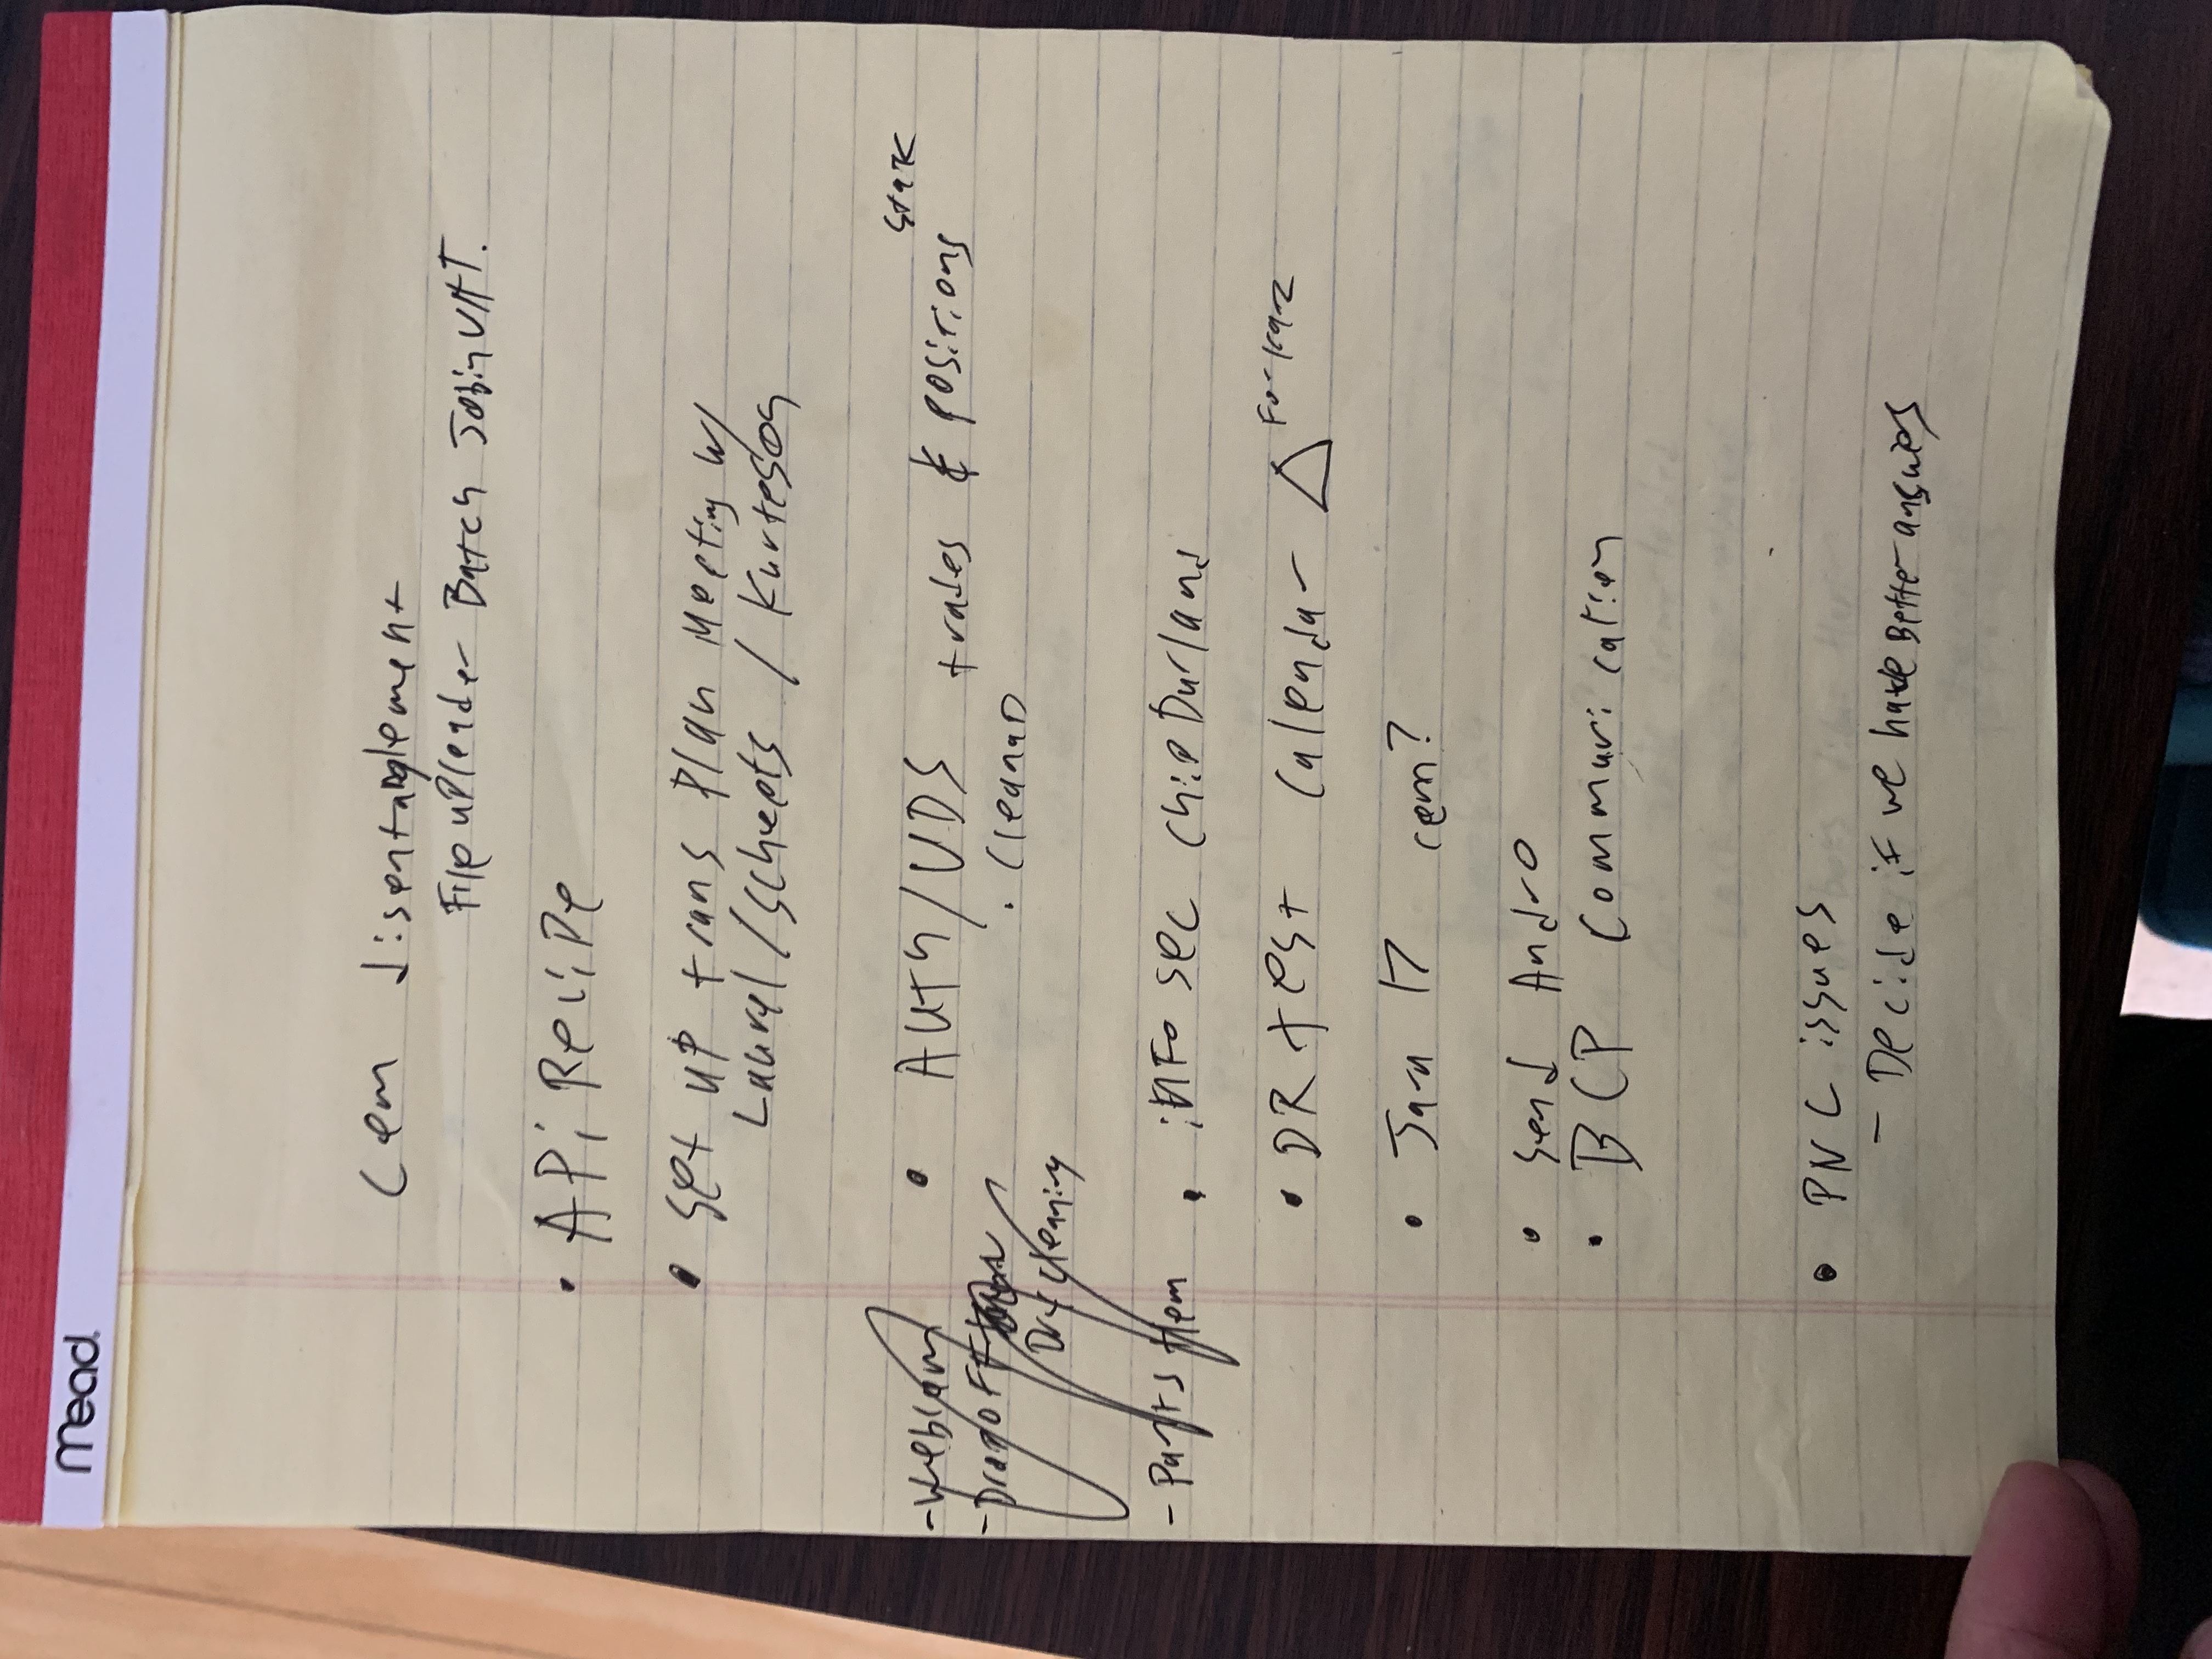 mead
Cem disentanglement
File uploader Batch Job in UAT.
• APi Recipe
• Set up trans Plan Meeting w/
Laurel / Scheets / Kurtesog
Stak
• Auth/UDS trades & positions
• Clean
- webcam
- Drop off
Dry Cleaning
- Pants Hem
• info sec Chip Durland
• DR test Calendar △ For
• Jan 17 cem?
• Send Andro
• BCP Communication
• PNC issues
- Decide if we have Better answers